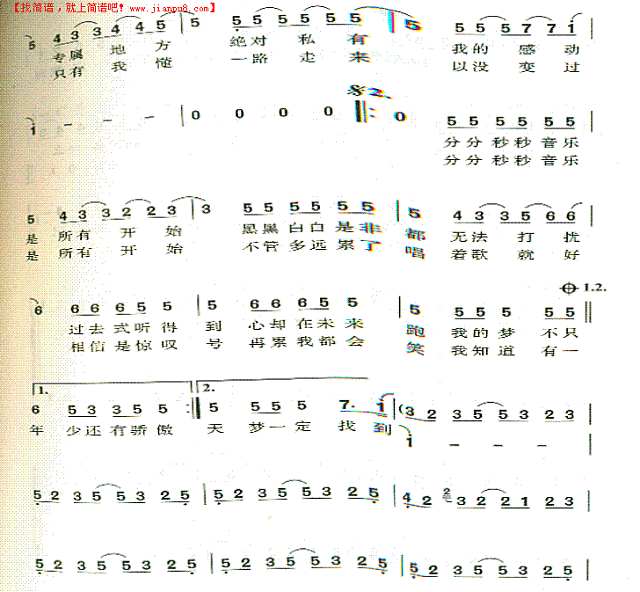 【找简谱，就上简谱吧！www.jianpu8.com】
5 4 3 3 4 4 5 5 5 5 5 5 5 5 5 7 7 i
专属 地 方 绝对 私 有 我的 感 动
只有 我 懂 一路 走 来 以没 变 过
𝄋 2.
i - - - 0 0 0 0 0 5 5 5 5 5 5
分分秒秒音乐
分分秒秒音乐
5 4 3 3 2 2 3 3 5 5 5 5 5 5 5 4 3 3 5 6 6
是 所有 开 始 黑黑白白是非 都 无法 打 扰
是 所有 开 始 不管多远累了 唱 着歌 就 好
1.2.
6 6 6 6 6 5 5 5 6 6 6 6 5 5 5 5 5 5 5 5 5
过去式听得 到 心却在未来 跑 我的梦不只
相信是惊叹 号 再累我都会 笑 我知道有一
1. 2.
6 5 3 3 5 5 5 5 5 5 5 7. i (3 2 3 5 5 3 2 3
年 少还有骄傲 天 梦一定 找到 i - - -
5 2 3 5 5 3 2 5 5 2 3 5 5 3 2 5 4 2 3 2 2 1 2 3
5 2 3 5 5 3 2 5 5 2 3 5 5 3 2 5 5 2 3 5 5 3 2 5